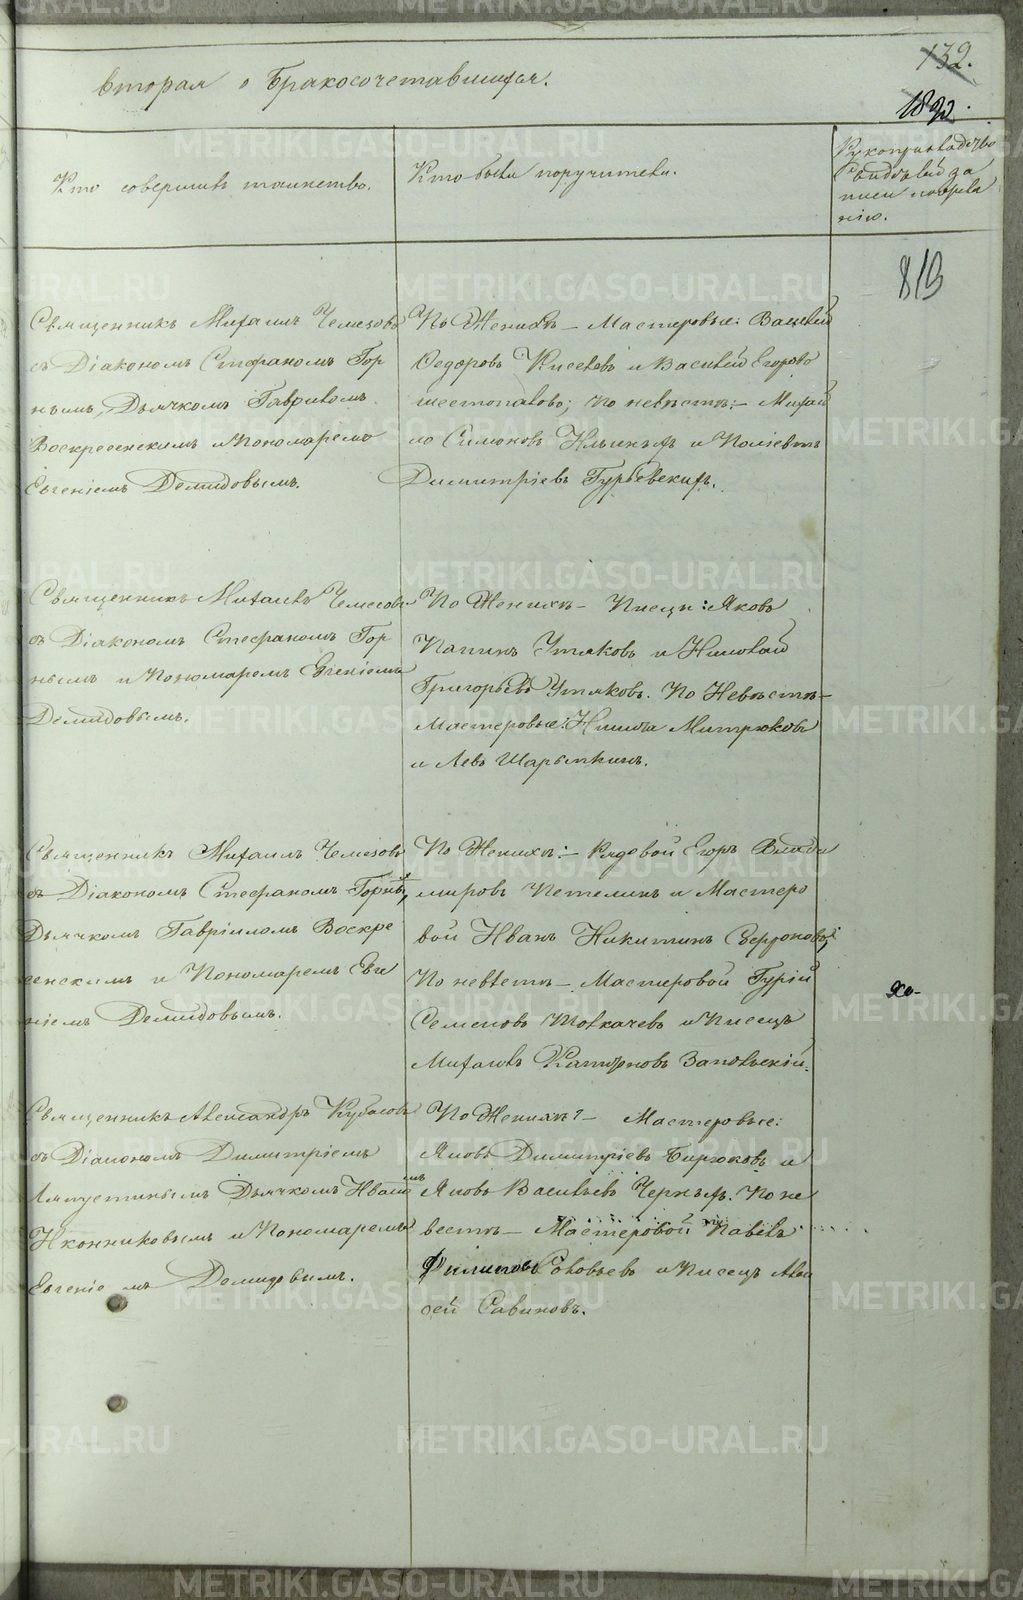 132.
вторая о Бракосочетавшихся.
Кто совершилъ таинство.
Кто были поручители.
Рукоприкладство
Свидѣтелей за
писи по жела
нію.
819
Священникъ Михаилъ Чемезовъ
съ Діакономъ Стефаномъ Гор
нымъ, Дьячкомъ Гавриломъ
Воскресенскимъ и Пономаремъ
Евгеніемъ Демидовымъ.
По Женихѣ – Мастеровые: Василей
Ѳедоровъ Киселевъ и Василей Егоровъ
Шестопаловъ; по невѣстѣ: – Михаи
ло Симоновъ Ильиныхъ и
Димитріевъ Гурьевскихъ.
Священникъ Михаилъ Чемезовъ
съ Діакономъ Стефаномъ Гор
нымъ и Пономаремъ Евгеніемъ
Демидовымъ.
По Женихѣ – Писцы: Яковъ
Утяковъ и Николай
Григорьевъ Утяковъ. По Невѣстѣ –
Мастеровые: Никита Митрюковъ
и Левъ Шарыпкинъ.
Священникъ Михаилъ Чемезовъ
съ Діакономъ Стефаномъ Горнымъ,
Дьячкомъ Гавріиломъ Воскре
сенскимъ и Пономаремъ Евге
ніемъ Демидовымъ.
По Женихѣ: – Рядовой Егоръ Влади
мировъ Петелинъ и Мастеро
вой Иванъ Никитинъ
По невѣстѣ – Мастеровой Гурій
Семеновъ Толкачевъ и Писецъ
Михаилъ
Священникъ Александръ Кубасовъ
съ Діакономъ Димитріемъ
Ляпустинымъ Дьячкомъ Иваномъ
Иконниковымъ и Пономаремъ
Евгеніемъ Демидовымъ.
По Женихѣ – Мастеровые:
Яковъ Димитріевъ Бирюковъ и
Яковъ Васильевъ Черныхъ. По не
вестѣ – Мастеровой Павелъ
Филиповъ Соловьевъ и Писецъ Алек
сей Савиновъ.
METRIKI.GASO-URAL.RU